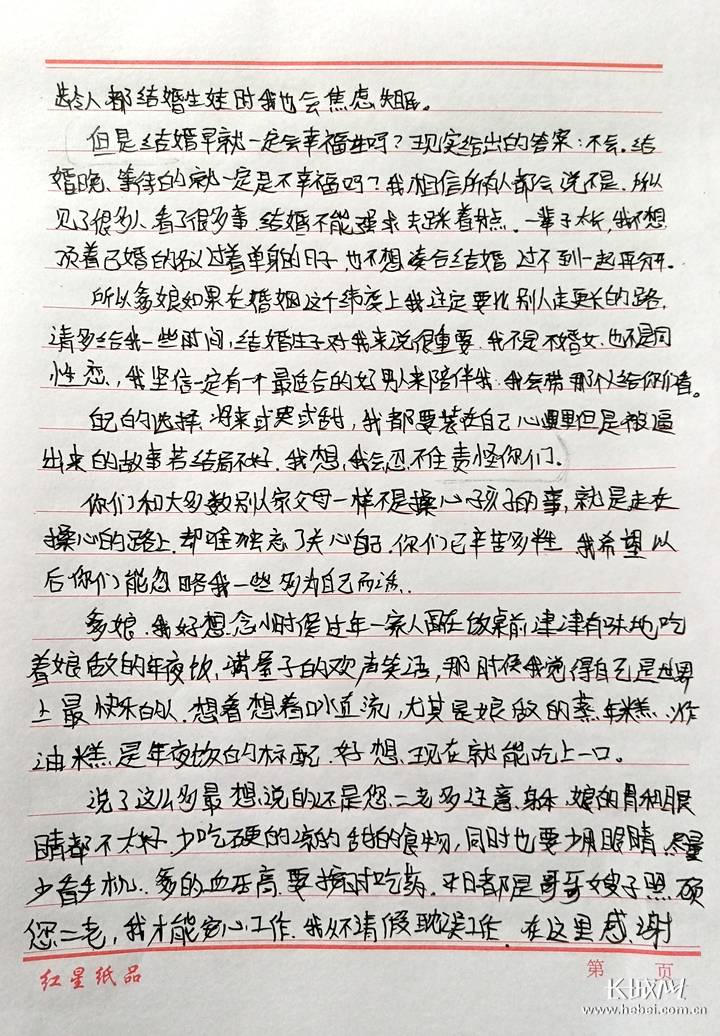 龄人都结婚生娃时我也会焦虑失眠。
但是结婚早就一定会幸福吗?现实给出的答案:不会.结
婚晚、等待的就一定是不幸福吗?我相信所有人都会说不是.所以
见了很多人看了很多事.结婚不能强求去踩着点.一辈子太长,我不想
顶着已婚的名义过着单身的日子,也不想凑合结婚 过不到一起再分开。
所以爹娘如果在婚姻这个纬度上我注定要比别人走更长的路,
请多给我一些时间,结婚生子对我来说很重要.我不是不婚女.也不是同
性恋,我坚信一定有一个最适合的好男人来陪伴我.我会带那个人给你们看。
自己的选择、将来或哭或甜,我都要装在自己心里但是被逼
出来的故事若结局不好.我想,我会忍不住责怪你们.
你们和大多数别人家父母一样不是操心孩子的事,就是走在
操心的路上.却唯独忘了关心自己.你们已辛苦多半生 我希望以
后你们能忽略我一些 多为自己而活.
爹娘.我好想念小时候过年一家人围在饭桌前津津有味地吃
着娘做的年夜饭,满屋子的欢声笑语,那时候我觉得自己是世界
上最快乐的人.想着想着口水直流,尤其是娘做的蒸年糕、炸
油糕、是年夜饭的标配.好想、现在就能吃上一口。
说了这么多最想说的还是您二老多注意身体.娘的胃和眼
睛都不太好.少吃硬的凉的甜的食物,同时也要少用眼睛.尽量
少看手机.爹的血压高.要按时吃药.平日都是哥哥嫂子照顾
您二老,我才能安心工作.我从不请假耽误工作.在这里感谢
红星纸品
第 页
长城网
www.hebei.com.cn